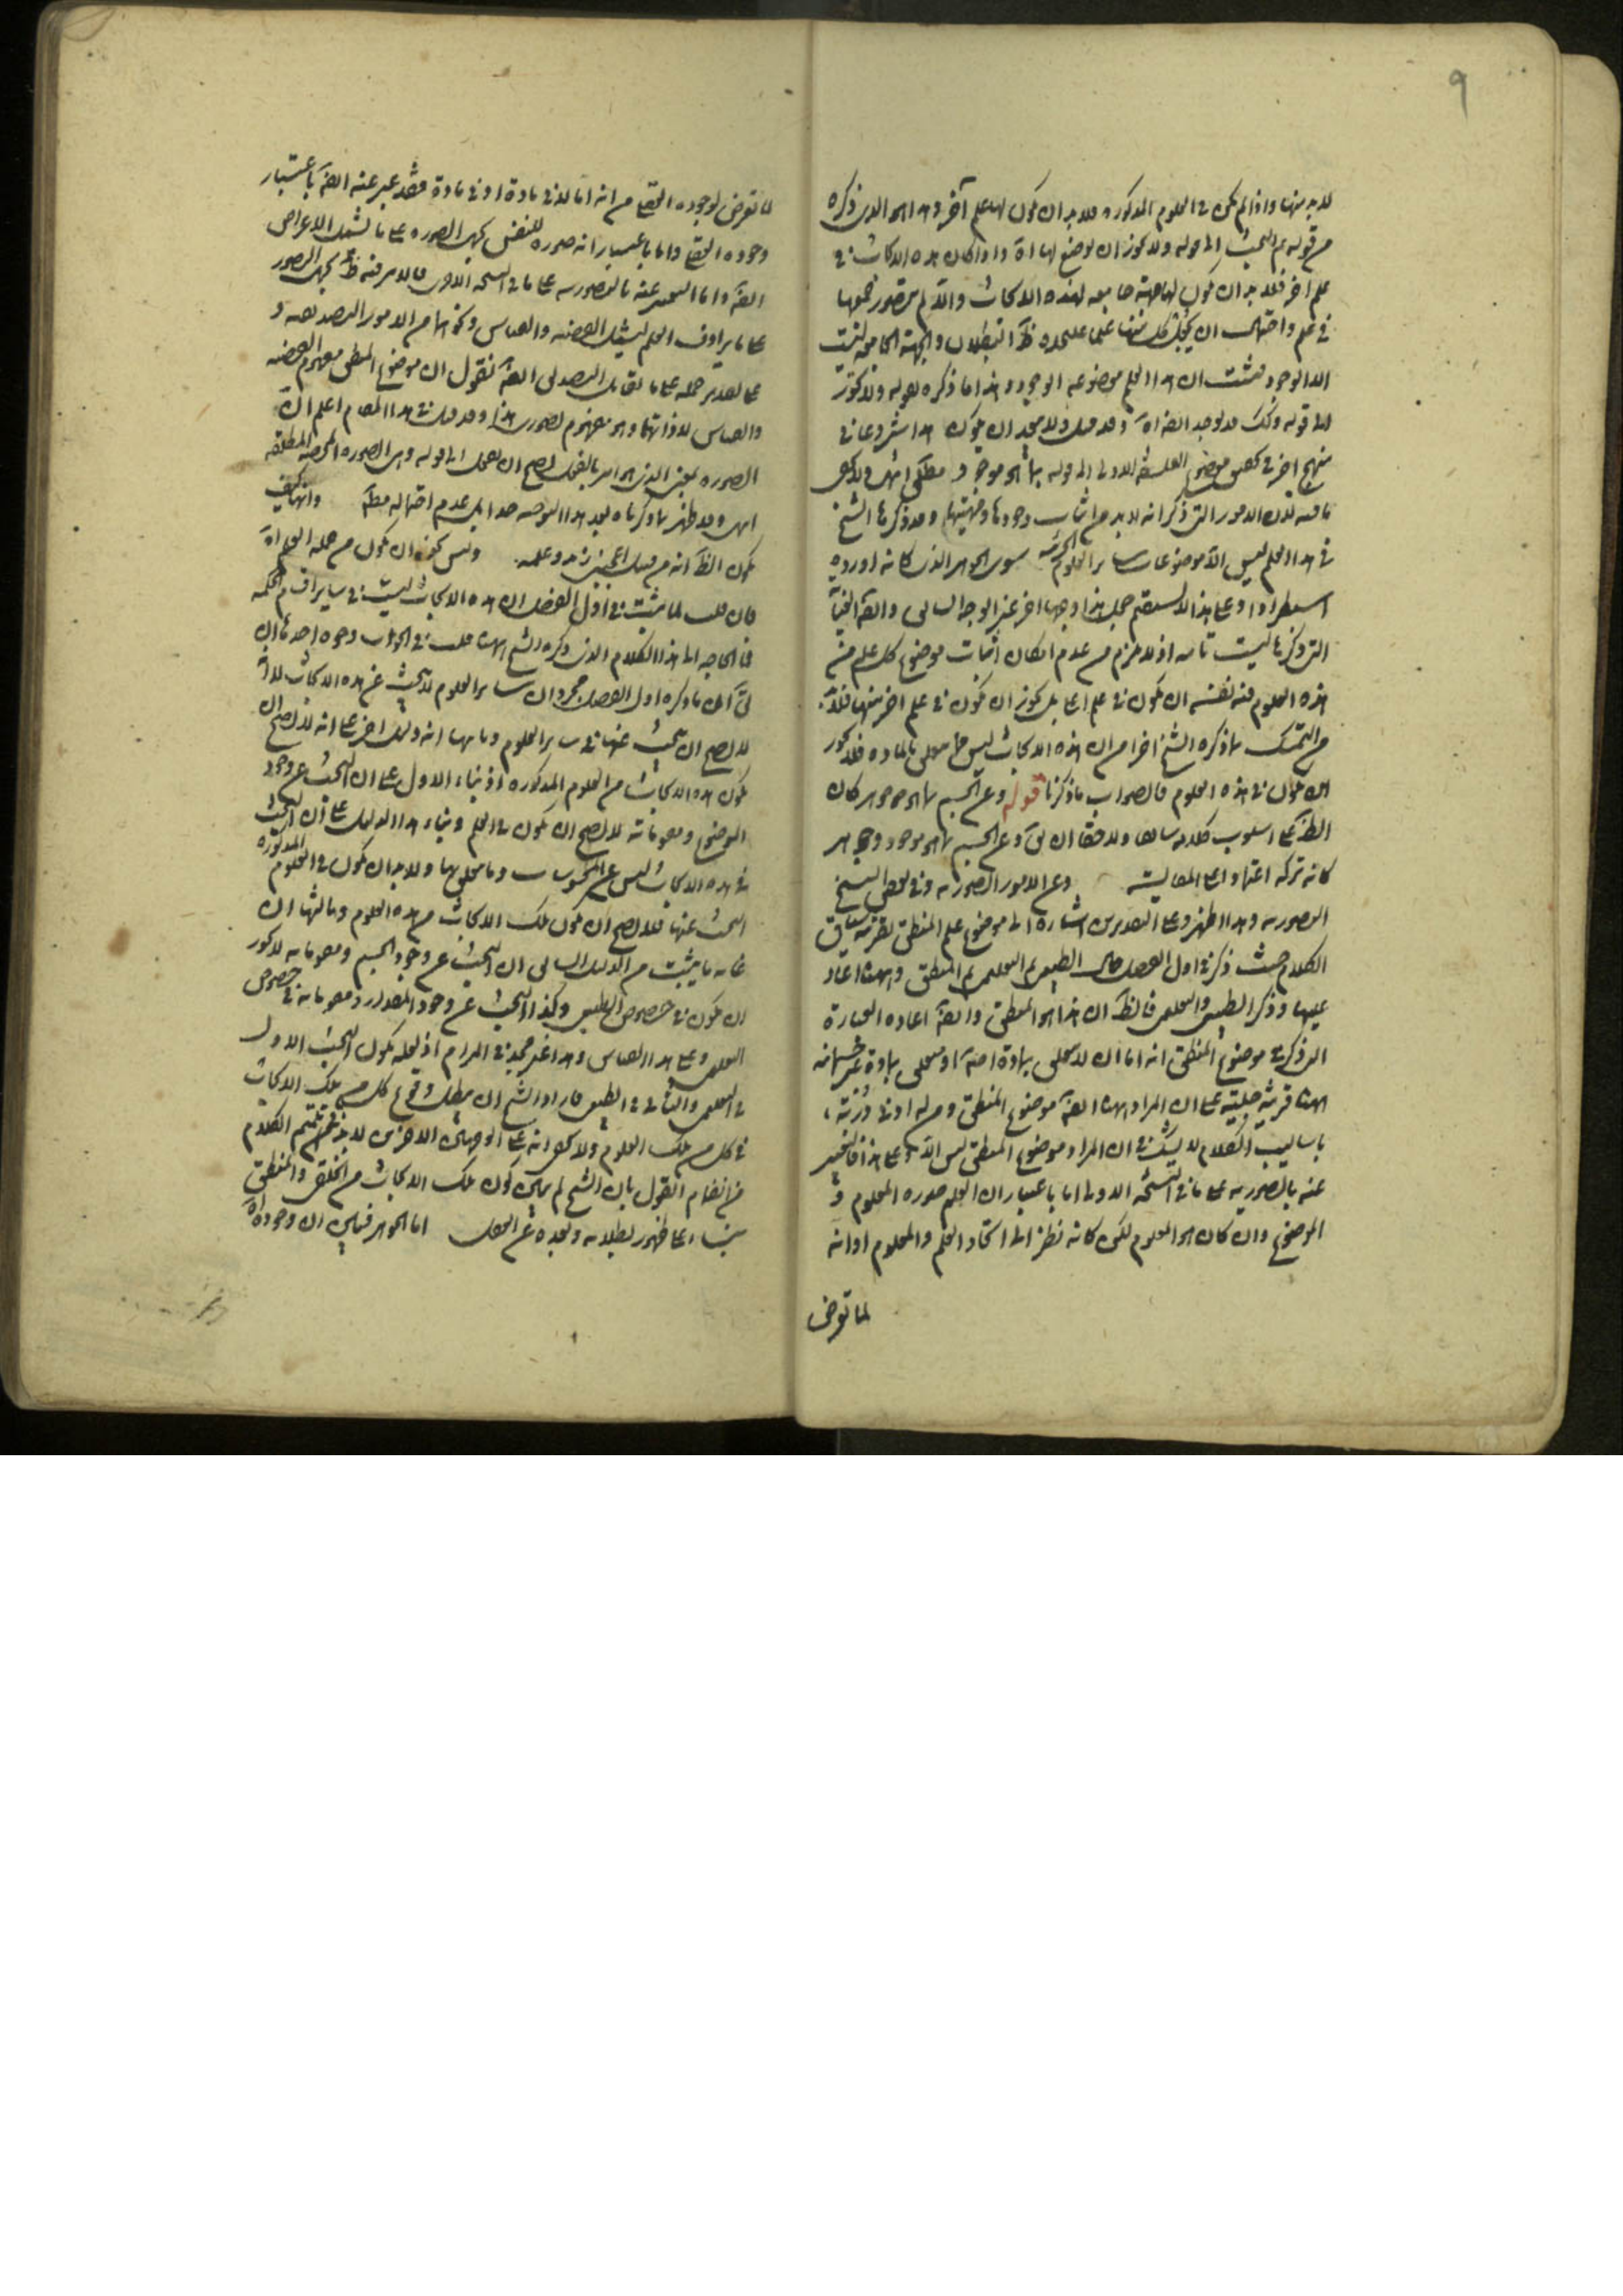 ٩
لابد منها واذا لم يكن في العلوم المذكورة فلابد ان يكون لها علم آخر وهذا هو الذي ذكره
من قوله ثم البحث الى قوله ولا يجوز ان يوضع لها اه واذا كان هذه الابحاث في
علم اخر فلابد ان يكون لها جهة جامعة لهذه الابحاث والا لم يتصور جمعها
في علم واحتمال ان يجعل كل منها علما عليحدة ظ البطلان والجهة الجامعة ليست
الا الوجود فثبت ان هذا العلم موضوعه الوجود وهذا ما ذكره بقوله ولا يجوز
الى قوله وكك قد يوجد ايضا اه وقد قيل ولا يبعد ان يكون هذا شروعا في
منهج اخر في تحقيق موضوع الفلسفة الاولى الى قوله بما هو موجود مطلق انتهى ولا يخفى
ما فيه لان الامور التي ذكر انه لابد من اثبات وجودها ومهيتها وقد ذكرها الشيخ
في هذا العلم ليس الا موضوعات ساير العلوم الجزئية سوى الجوهر الذي كانه اورده
استطرادا وعلى هذا لا يستقيم جعل هذا وجها اخر غير الوجه السابق وايضا
التي ذكرها ليست تامة اذ لا يلزم من عدم امكان اثبات موضوع كل علم من
هذه العلوم فيه نفسه ان يكون في علم اعلى بل يجوز ان يكون في علم اخر منها فلابد
من التمسك بما ذكره الشيخ اخرا من ان هذه الابحاث ليس مما يتعلق بالمادة فلا يجوز
ان يكون في هذه العلوم فالصواب ما ذكرنا قوله وعن الجسم بما هو جوهر كان
الظ على اسلوب كلامه سابقا ولاحقا ان يق وعن الجسم بما هو موجود وجوهر
كانه تركه اعتمادا على المقايسة وعن الامور الصورية وفي بعض النسخ
التصورية وهذا اظهر وعلى التقديرين اشارة الى موضوع علم المنطق بقرينة سياق
الكلام حيث ذكر في اول الفصل حال الطبيعي ثم التعليمي ثم المنطق وههنا اعاد
عليها وذكر الطبيعي والتعليمي فالظ ان هذا هو المنطق وايضا اعاده العبارة
التي ذكر في موضوع المنطق انه اما ان لا يتعلق بمادة اصلا او يتعلق بمادة غير جسمانية
ههنا قرينة جلية على ان المراد ههنا ايضا موضوع المنطق ومن له ادنى دربة
باساليب الكلام لا يشك في ان المراد موضوع المنطق ليس الا وعلى هذا فالتعبير
عنه بالصورية على ما في النسخة الاولى اما باعتبار ان العلم صورة المعلوم و
الموضوع وان كان هو المعلوم لكن كانه نظر الى اتحاد العلم والمعلوم او انه
لما تعرض
لما تعرض لوجوده العقلي من انه اما لا في مادة او في مادة فقد عبر عنه ايضا باعتبار
وجوده العقلي واما باعتبار انه صورة للنفس بحمل الصورة على ما يشمل الاعراض
ايضا واما التعبير عنه بالتصورية على ما في النسخة الاخرى فالامر فيه ظ بحمل التصور
على ما يرادف العلم ليشمل القضية والقياس ونحوهما من الامور التصديقية و
على تقدير حمله على ما يقابل التصديق ايضا نقول ان موضوع المنطق مفهوم القضية
والقياس لا ذاتهما وهو مفهوم تصوري هذا وقد قيل في هذا المقام اعلم ان
الصورة بمعنى الذي هو امر بالفعل يصح ان يعقل الى قوله وهي الصورة الجرمية المطلقة
انتهى وقد ظهر بما ذكرناه بعد هذا التوجيه جدا بل عدم احتماله مطلقا وانه كيف
يكون الظ انه من قبيل اعجبني زيد وعلمه وليس يجوز ان يكون من جملة العلم اه
فان قلت لما ثبت في اول الفصل ان هذه الابحاث ليست في ساير اقسام الحكمة
فما الحاجة الى هذا الكلام الذي ذكره الشيخ ههنا قلت في الجواب وجوه احدها ان
يق ان ما ذكره اول الفصل مجرد ان ساير العلوم لا يبحث عن هذه الابحاث لا انه
لا يصح ان يبحث عنها في ساير العلوم وثانيها انه دليل اخر على انه لا يصح ان
يكون هذه الابحاث من العلوم المذكورة اذ بناء الاول على ان البحث عن وجود
الموضوع ومقوماته لا يصح ان يكون في العلم وبناء هذا الدليل على ان البحث
في هذه الابحاث ليس عن المحسوسات وما يتعلق بها ولابد ان يكون في العلوم المذكورة
البحث عنها فلا يصح ان يكون تلك الابحاث من هذه العلوم وثالثها ان
غاية ما يثبت من الدليل السابق ان البحث عن وجود الجسم ومقوماته لا يجوز
ان يكون في خصوص الطبيعي وكذا البحث عن وجود المقدار ومقوماته في خصوص
التعليمي وعلى هذا القياس وهذا غير مجد في المرام اذ لعله يكون البحث الاول
في التعليمي والثاني في الطبيعي فاراد الشيخ ان يبطل وقوع كل من تلك الابحاث
في كل من تلك العلوم ولا يخفى انه على الوجهين الاخيرين لابد في تتميم الكلام
من انضمام القول بان الشيخ لم يبين كون تلك الابحاث من الخلقي والمنطقي
بناء على ظهور بطلانه وبعده عن العقل اما الجوهر فبين ان وجوده اه